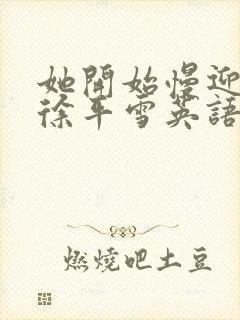 她開始慢迎
徐平雪英語
燃燒吧土豆